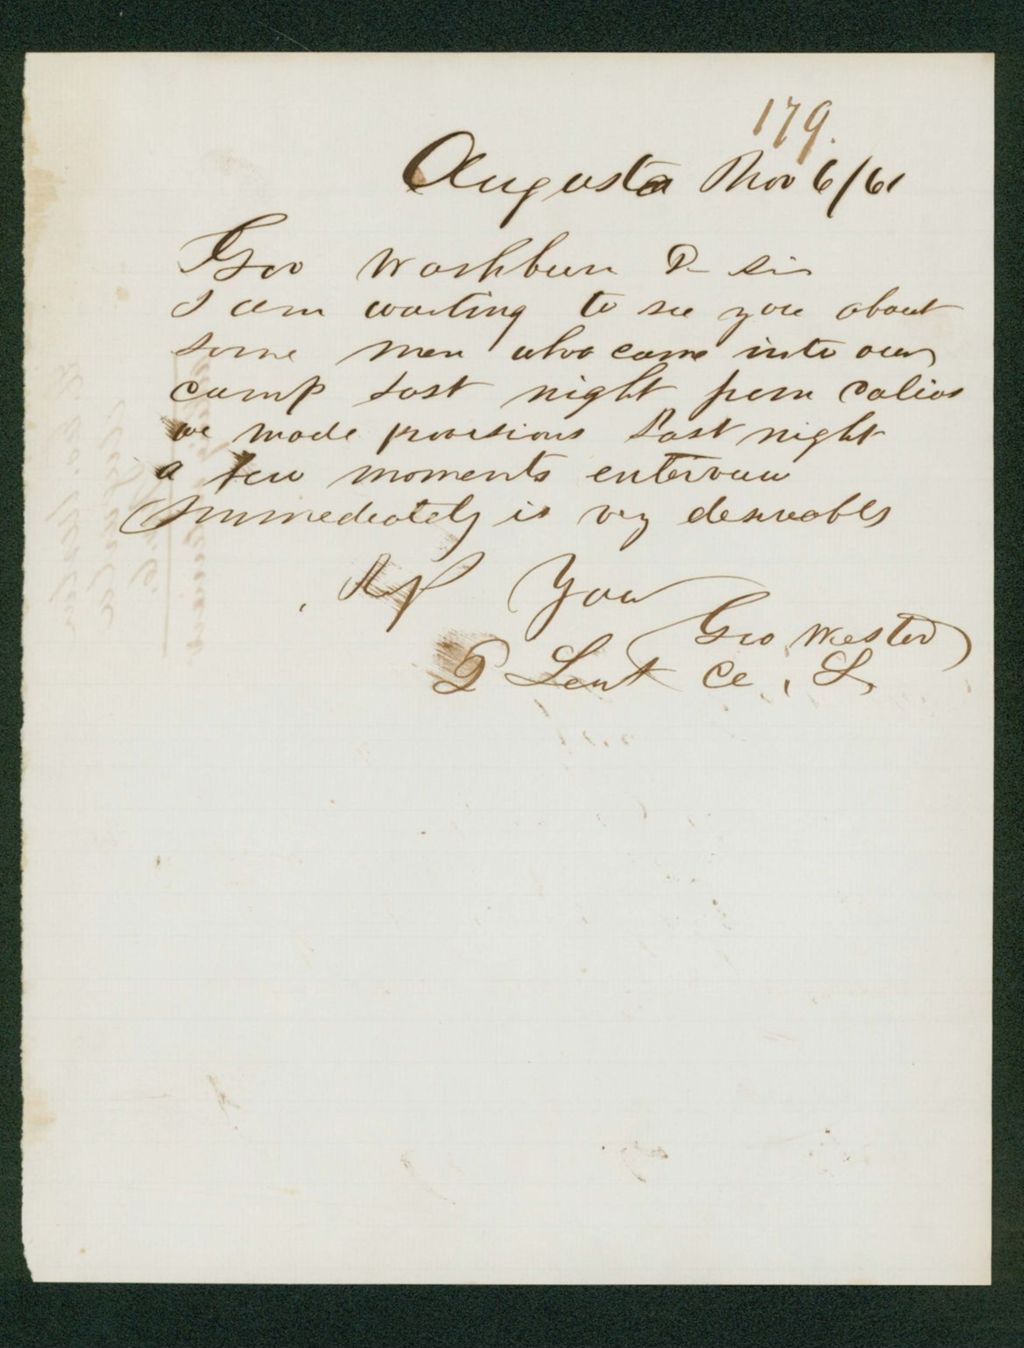 179.
Augusta Nov 6/61
Gov Washburn D sir
I am waiting to see you about
some men who came into our
camp Last night from Calias
we made provisions Last night
a few moments enterveiw
immediately is vry desireable
Rsp Your
Geo Weston
2 Leut Co, L